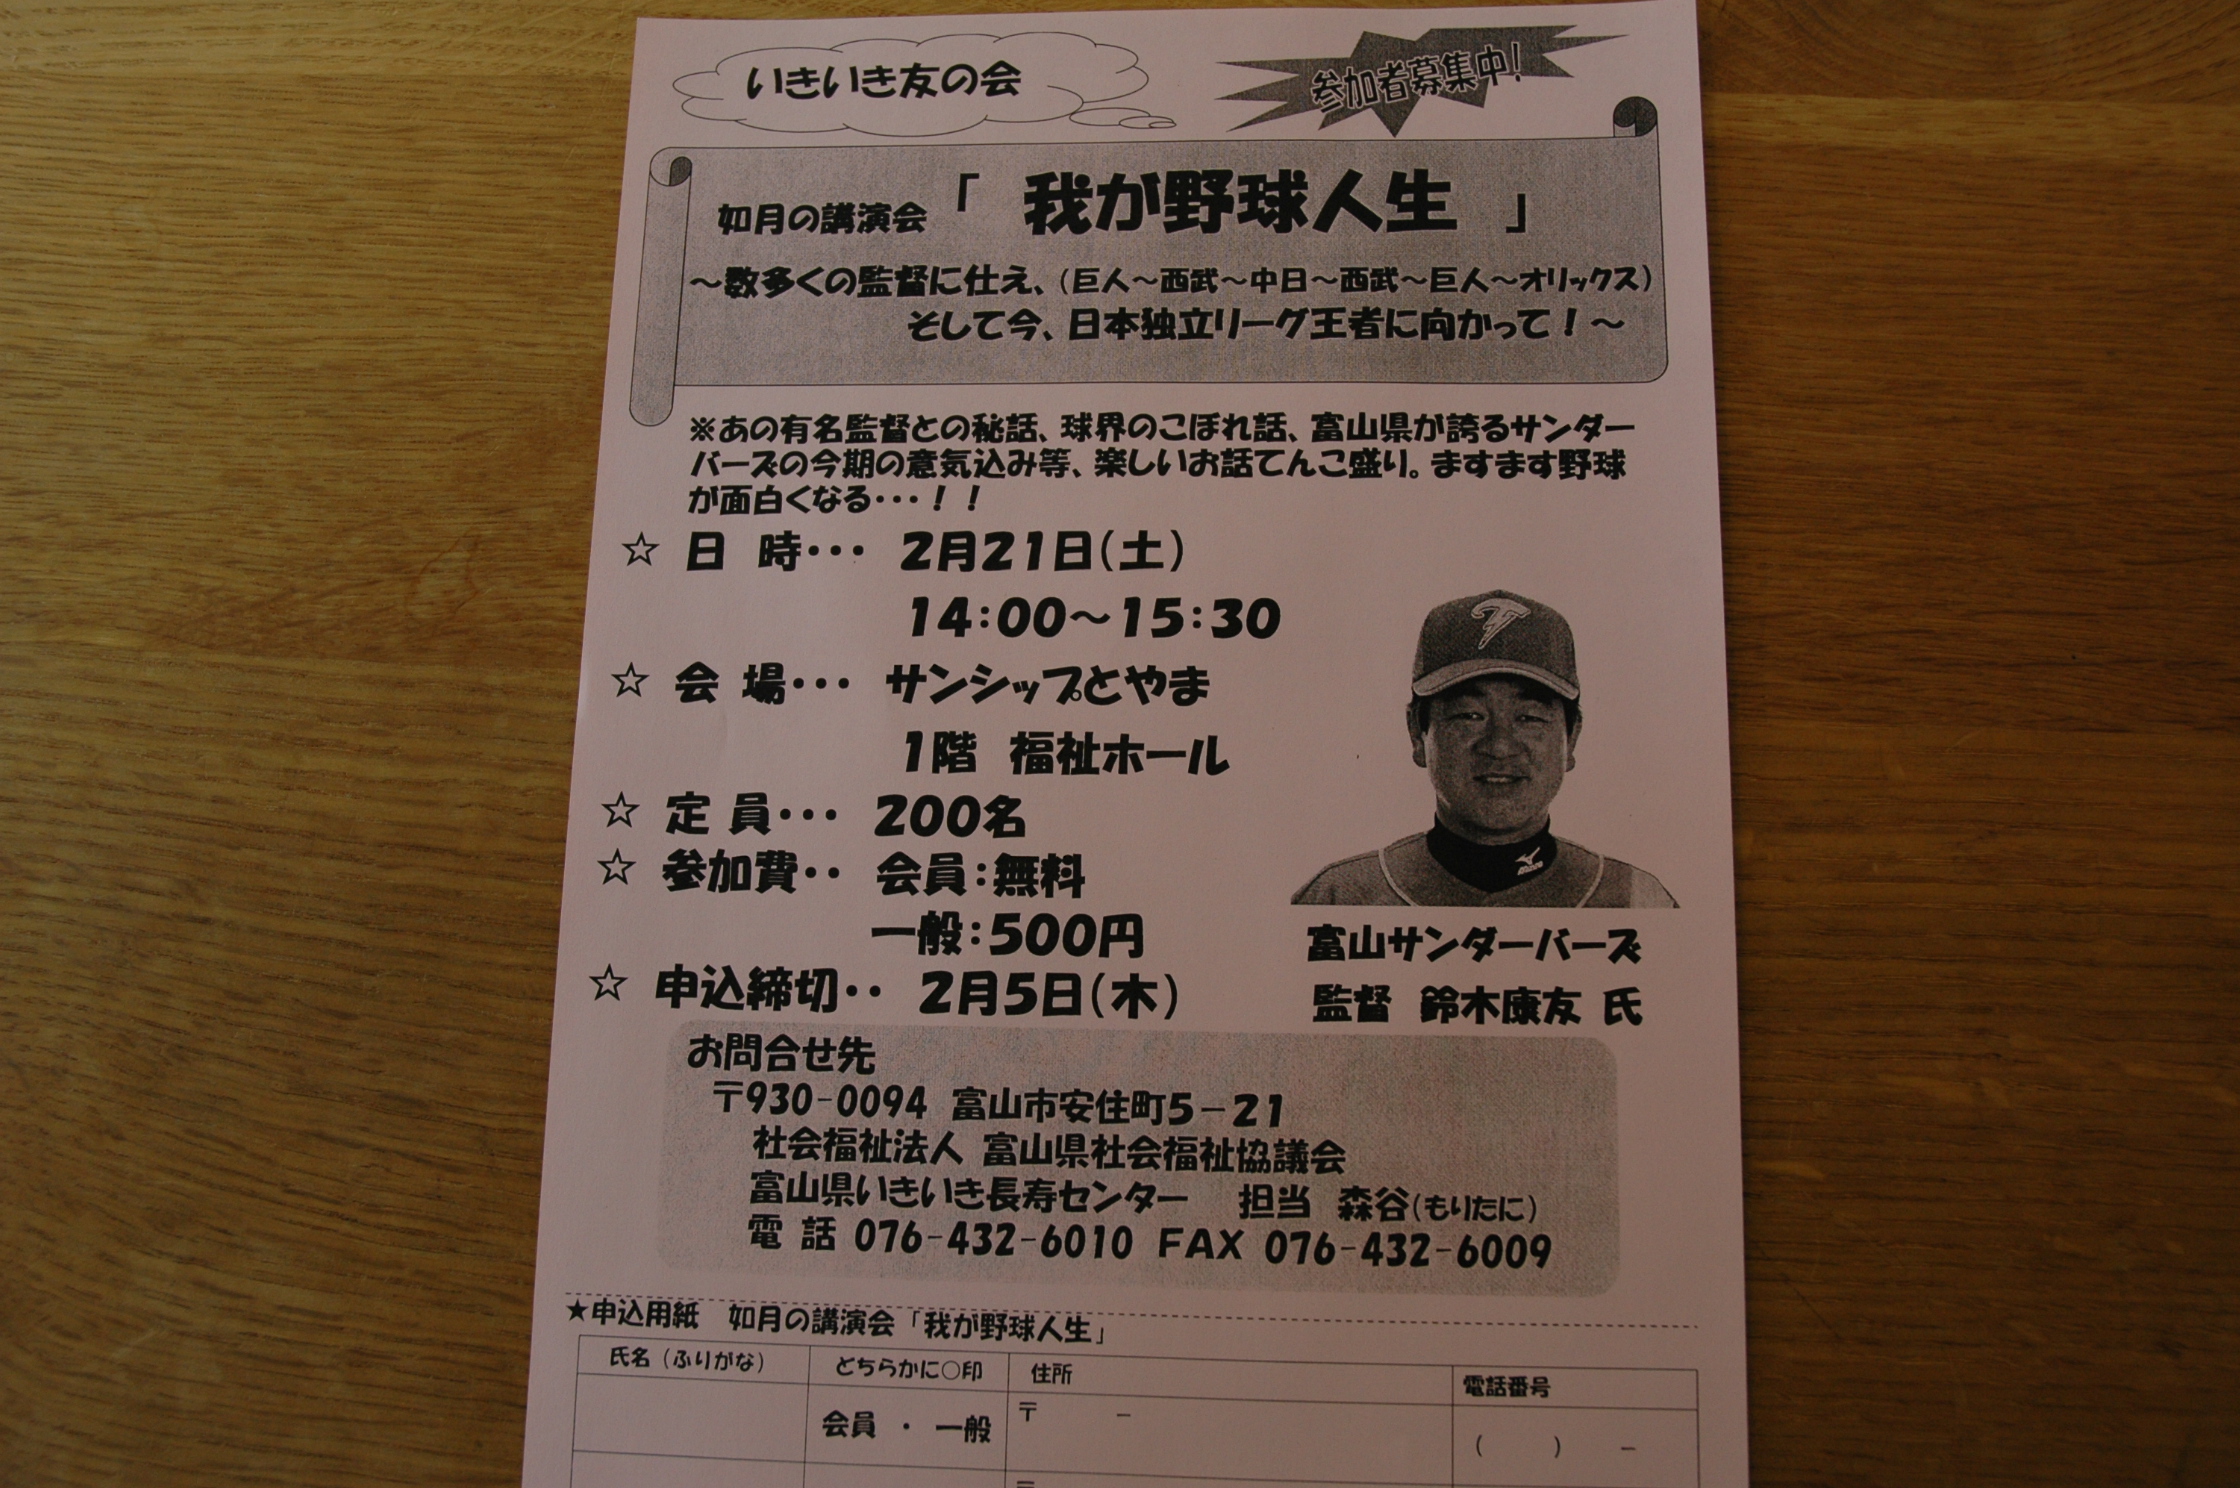 いきいき友の会
参加者募集中!
如月の講演会「 我が野球人生 」
～数多くの監督に仕え、(巨人～西武～中日～西武～巨人～オリックス)
そして今、日本独立リーグ王者に向かって！～
※あの有名監督との秘話、球界のこぼれ話、富山県が誇るサンダー
バーズの今期の意気込み等、楽しいお話てんこ盛り。ますます野球
が面白くなる・・・！！
☆ 日 時・・・ 2月21日(土)
14:00～15:30
☆ 会 場・・・ サンシップとやま
1階 福祉ホール
☆ 定 員・・・ 200名
☆ 参加費・・ 会員：無料
一般：500円
☆ 申込締切・・ 2月5日(木)
mizuno
富山サンダーバーズ
監督 鈴木康友 氏
お問合せ先
〒930-0094 富山市安住町5-21
社会福祉法人 富山県社会福祉協議会
富山県いきいき長寿センター 担当 森谷(もりたに)
電 話 076-432-6010 FAX 076-432-6009
★申込用紙 如月の講演会「我が野球人生」
氏名（ふりがな） どちらかに○印 住所 電話番号
会員 ・ 一般 〒 － ( ) －
〒